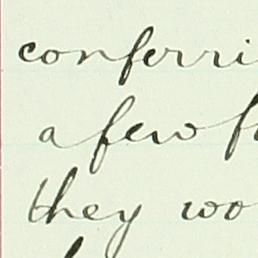 conferri
a few f
they wo